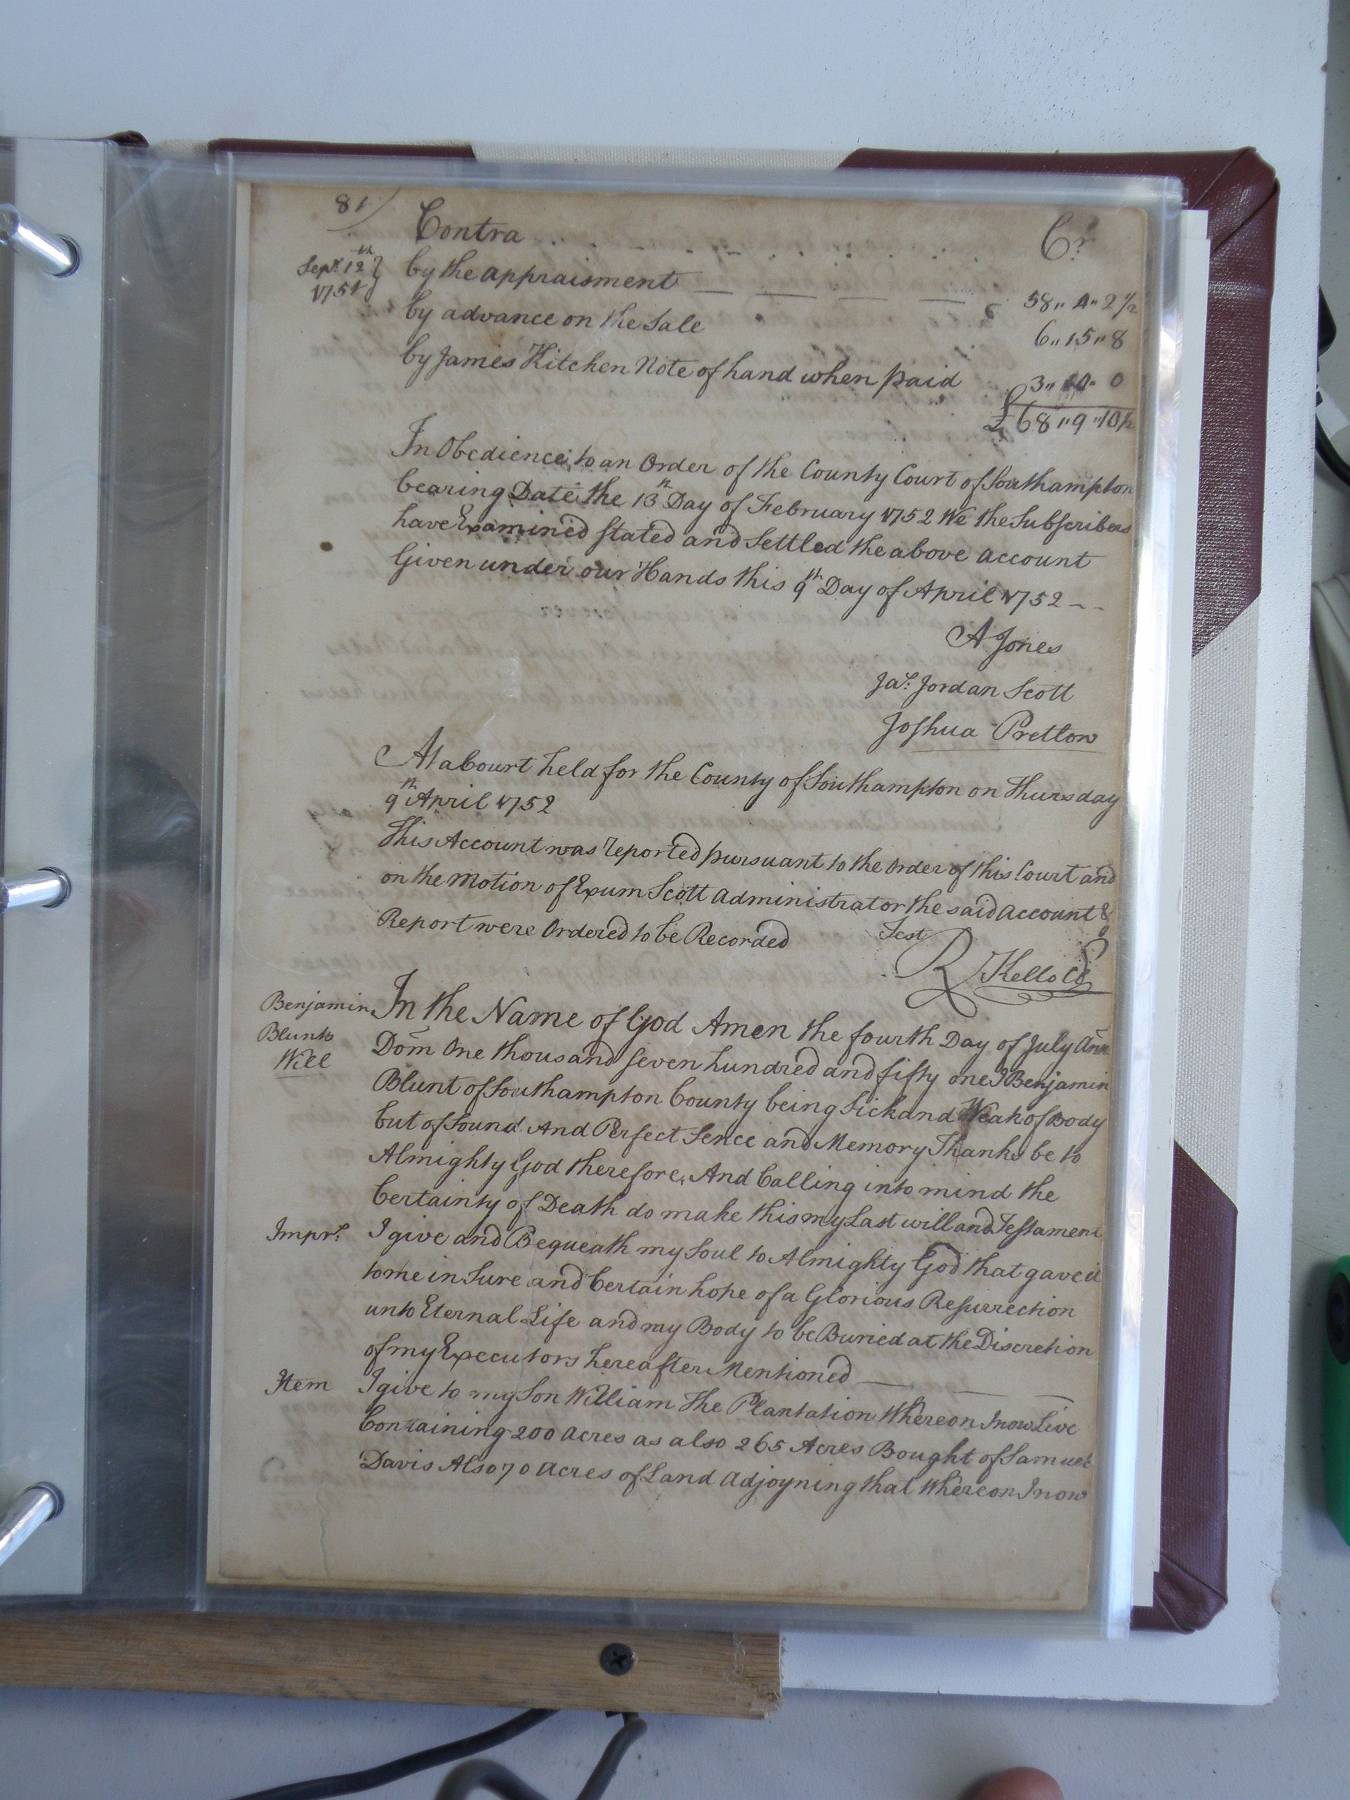 81
Contra Cr
Sept 12th 1751 by the appraisment 58,, 4,, 2 1/2
by advance on the Sale 6,, 15,, 8
by James Kitchen Note of hand when paid 3,, 10,, 0
£68,,9,,10 1/2
In Obedience to an Order of the County Court of Southampton
bearing Date the 13th Day of February 1752 We the Subscribers
have Examined stated and Settled the above account
Given under our Hands this 9th Day of April 1752
A Jones
Jas: Jordan Scott
Joshua Pretlow
At a Court held for the County of Southampton on Thursday
9th April 1752
This Account was reported pursuant to the Order of this Court and
on the Motion of Exum Scott Administrator the said Account &
Report were Ordered to be Recorded Test
R Kello Cl
Benjamin In the Name of God Amen the fourth Day of July Ann
Blunts Dom One thousand seven hundred and fifty one I Benjamin
Will Blunt of Southampton County being Sick and Weak of Body
but of Sound And Perfect Sence and Memory Thanks be to
Almighty God therefore, And Calling into mind the
Certainty of Death do make this my Last will and Testament
Imprs I give and Bequeath my Soul to Almighty God that gave it
to me in Sure and Certain hope of a Glorious Resurrection
unto Eternal Life and my Body to be Buried at the Discretion
of my Executors hereafter Mentioned
Item I give to my Son William The Plantation Whereon I now Live
Containing 200 acres as also 265 Acres Bought of Samuel
Davis Also 70 acres of Land Adjoyning that Whereon I now